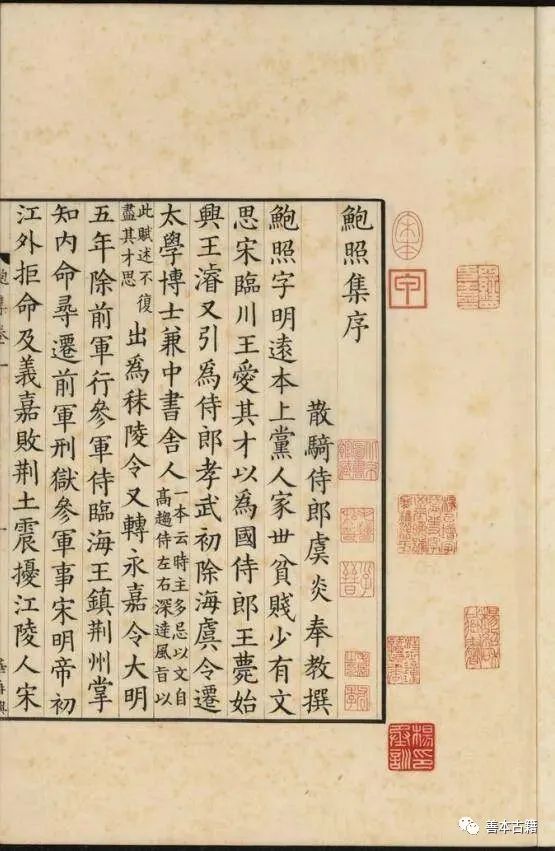 鮑照集序
散騎侍郎虞炎奉教撰
鮑照字明遠本上黨人家世貧賤少有文
思宋臨川王愛其才以為國侍郎王薨始
興王濬又引為侍郎孝武初除海虞令遷
太學博士兼中書舍人一本云時主多忌以文自
高趨侍左右深達風旨以
此賦述不復
盡其才思出為秣陵令又轉永嘉令大明
五年除前軍行參軍侍臨海王鎮荆州掌
知內命尋遷前軍刑獄參軍事宋明帝初
江外拒命及義嘉敗荆土震擾江陵人宋
善本古籍